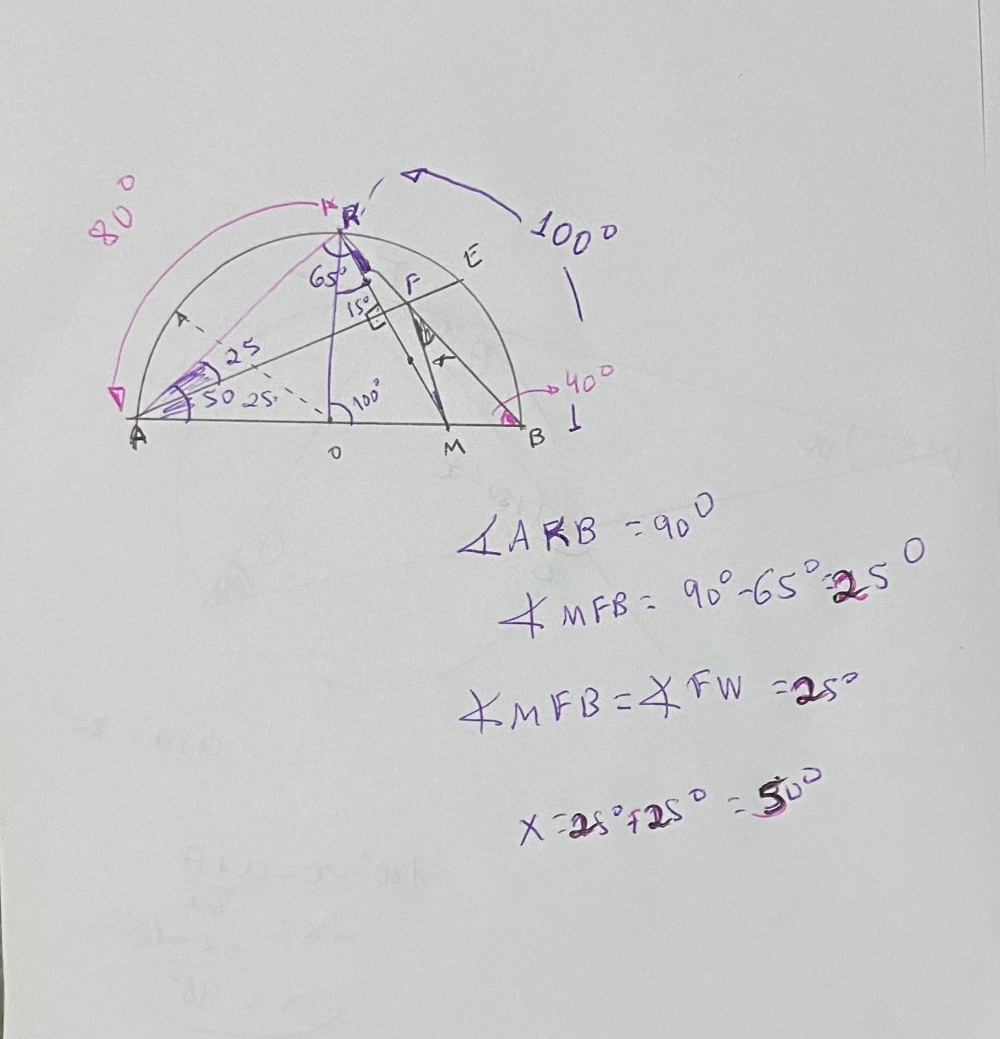 80°
R
100°
E
65°
F
15°
25
x
50 25
100°
40°
A
O
M
B
∡ARB = 90°
∡MFB = 90°-65°=25°
∡MFB = ∡FW = 25°
X=25°+25° = 50°